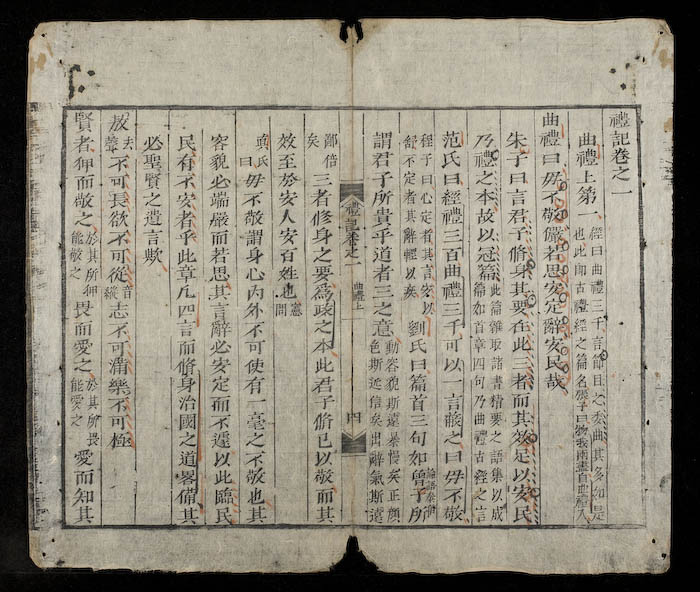 禮記卷之一
曲禮上第一 經曰曲禮三千言節目之委曲其多如是也此卽古禮經之篇名張子曰物我兩盡自曲禮入
曲禮曰毋不敬儼若思安定辭安民哉
朱子曰言君子脩身其要在此三者而其效足以安民
乃禮之本故以冠篇 此篇雜取諸書精要之語集以成篇如首章四句乃曲禮古經之言
范氏曰經禮三百曲禮三千可以一言蔽之曰毋不敬
程子曰心定者其言安以舒不定者其辭輕以疾 劉氏曰篇首三句如曾子所
謂君子所貴乎道者三之意 動容貌斯遠暴慢矣正顏色斯近信矣出辭氣斯遠
鄙倍矣 三者修身之要爲政之本此君子脩己以敬而其
效至於安人安百姓也
眞氏曰 毋不敬謂身心內外不可使有一毫之不敬也其
容貌必端嚴而若思其言辭必安定而不遽以此臨民
民有不安者乎此章凡四言而脩身治國之道畧備其
必聖賢之遺言歟
敖去聲不可長欲不可從音縱志不可滿樂不可極
賢者狎而敬之 於其所狎能敬之 畏而愛之 於其所畏能愛之 愛而知其
禮記卷之一 曲禮上 四